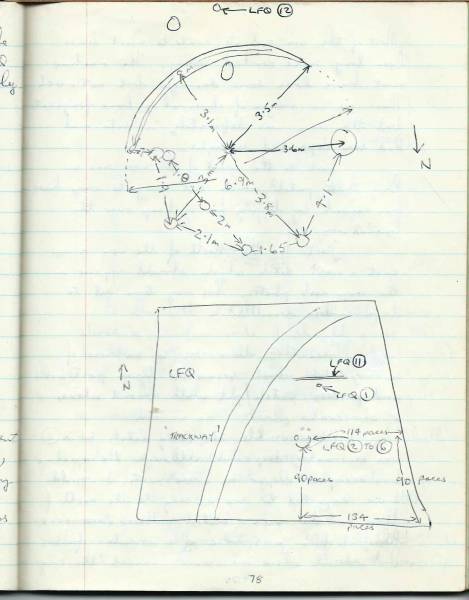 LFQ (12)
3.1m
3.5m
3.6m
6.9m
3.8m
4.1
2m
2.1m
1.65
N
LFQ (11)
LFQ
N
LFQ (1)
'TRACKWAY'
114 paces
LFQ (2) TO (6)
90 paces
90 paces
134
paces
78